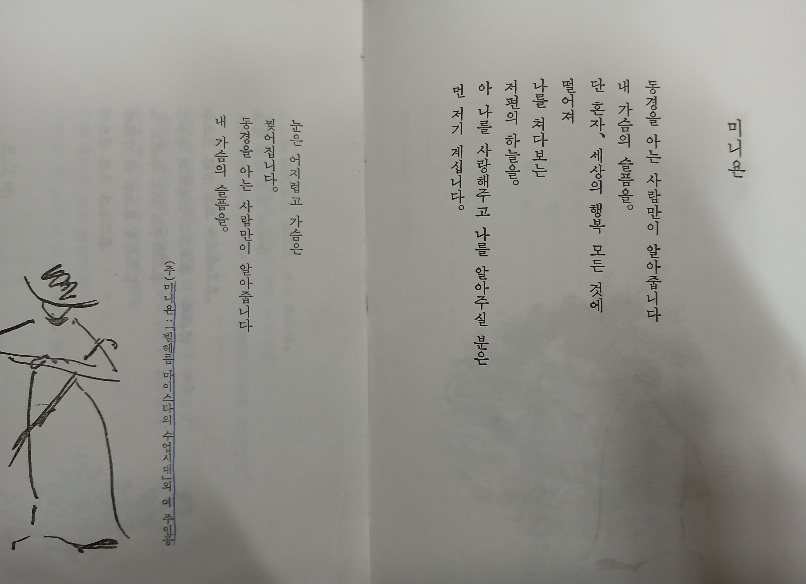 미니욘
동경을 아는 사람만이 알아줍니다
내 가슴의 슬픔을。
단 혼자、세상의 행복 모든 것에
떨어져
나를 쳐다보는
저편의 하늘을。
아 나를 사랑해주고 나를 알아주실 분은
먼 저기 계십니다。
눈은 어지럽고 가슴은
찢어집니다。
동경을 아는 사람만이 알아줍니다
내 가슴의 슬픔을。
(주) 미니욘:「빌헤름 마이스타의 수업시대」의 여 주인공